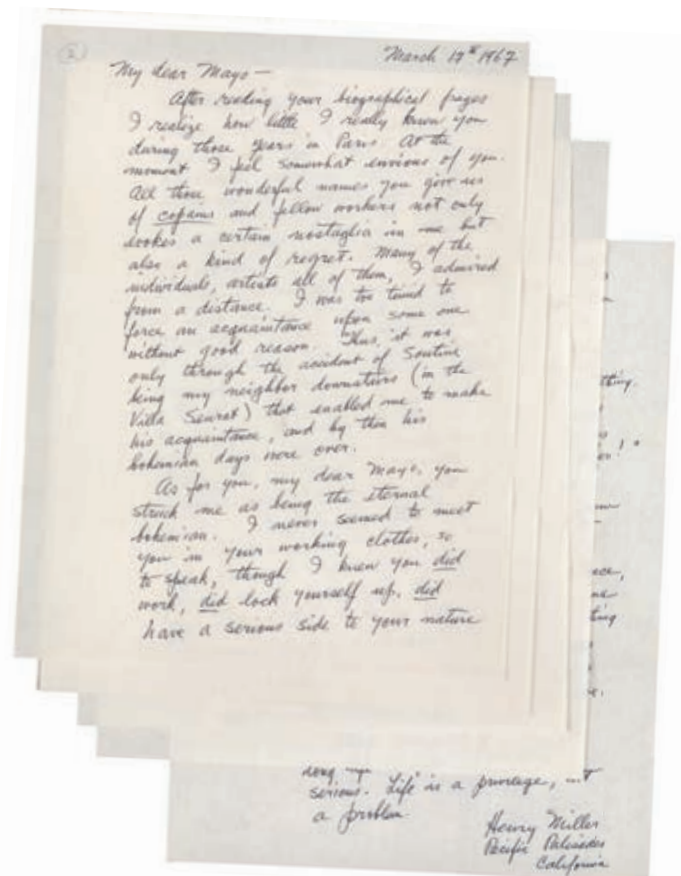 (2)
March 17th 1967
My dear Mayo —
After reading your biographical pages
I realize how little I really knew you
during those years in Paris. At the
moment I feel somewhat envious of you.
All those wonderful names you give us
of copains and fellow workers not only
evokes a certain nostaglia in me but
also a kind of regret. Many of the
individuals, artists all of them, I admired
from a distance. I was too timid to
force an acquaintance upon some one
without good reason. Thus, it was
only through the accident of Soutine
being my neighbor downstairs (in the
Villa Seurat) that enabled me to make
his acquaintance, and by then his
bohemian days were over.
As for you, my dear Mayo, you
struck me as being the eternal
bohemian. I never seemed to meet
you in your working clothes, so
to speak, though I knew you did
work, did lock yourself up, did
have a serious side to your nature
serious. Life is a privilege, not
a problem.
Henry Miller
Pacific Palisades
California